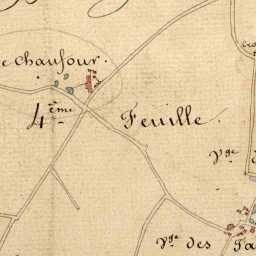 e chaufour.
4.ème Feuille.
Vge
Vge des